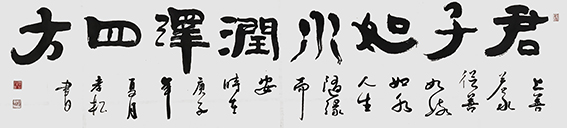 君子如水潤澤四方
上善
若水
從善
如流
如水
人生
隨緣
而
安
時在
庚子
年
夏月
書